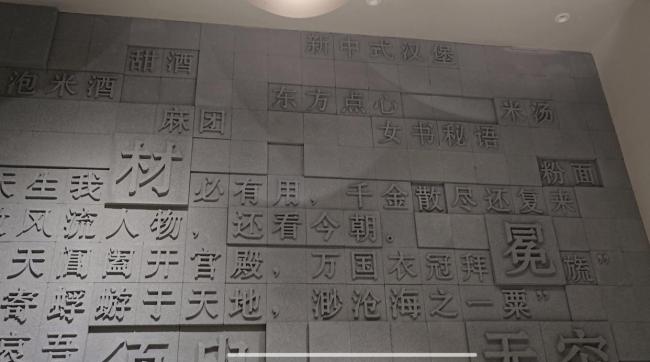 新中式汉堡
甜酒
泡米酒
东方点心
米汤
麻团
女书秘语
粉面
天生我材必有用，千金散尽还复来
风流人物，还看今朝。
天阊阖开宫殿，万国衣冠拜冕旒”
寄蜉蝣于天地，渺沧海之一粟”
吾